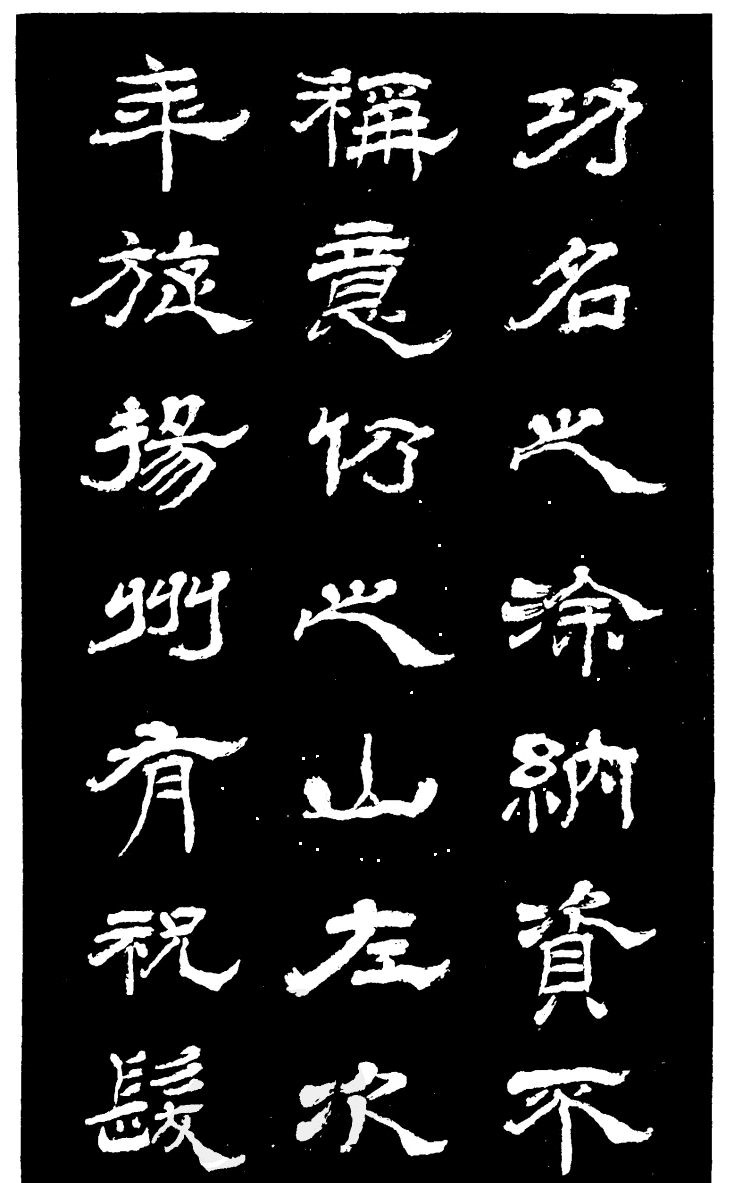 功名之涂納資不
稱意仍之山左次
年旋揚州有祝髮